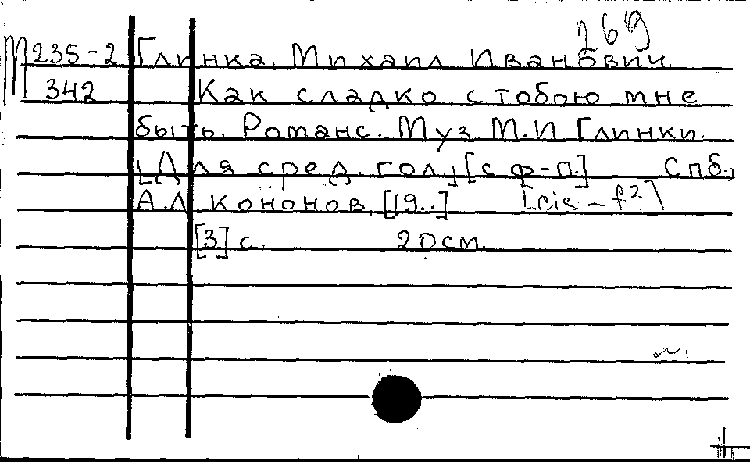 269
М 235-2 Глинка, Михаил Иванович
342 Как сладко с тобою мне
быть. Романс. Муз. М.И Глинки.
[Для сред. гол.] [с ф-п.] Спб.,
А.Л Кононов, [19..] [cis - f²]
[3] с. 20см.